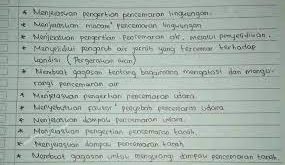 * Menjelaskan pengertian pencemaran lingkungan.
* Menjelaskan macam² pencemaran lingkungan
* Menjelaskan pengertian pencemaran air, melalui penyelidikan.
* Menyelidiki pengaruh air jernih yang tercemar terhadap
kondisi (Pergerakan ikan)
* Membuat gagasan tentang bagaimana mengatasi dan mengu-
rangi pencemaran air
* Menjelaskan pengertian pencemaran udara.
* Menyebutkan faktor² penyebab pencemaran udara.
* Menjelaskan dampak pencemaran udara.
* Menjelaskan pengertian pencemaran tanah.
* Menjelaskan dampak pencemaran tanah.
* Membuat gagasan untuk mengurangi dampak pencemaran tanah